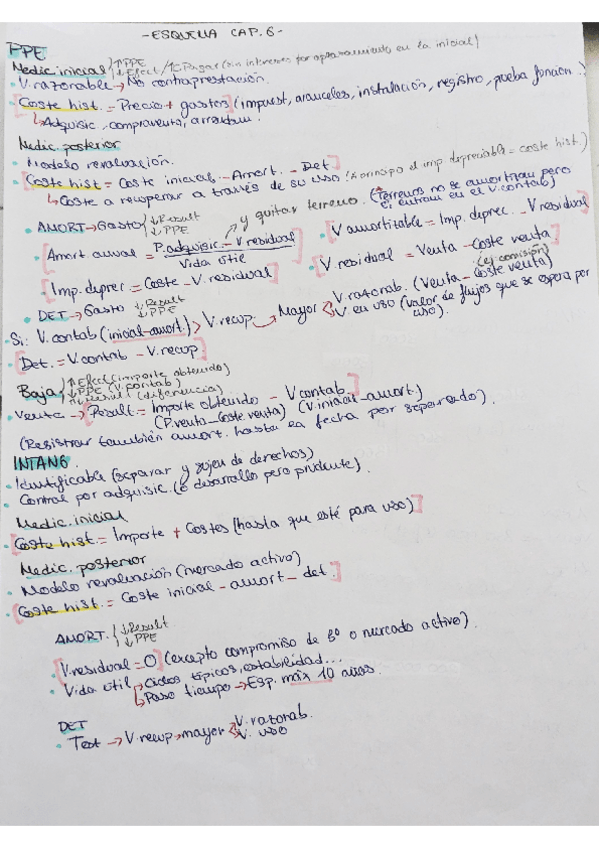 -ESQUEMA CAP. 6-
PPE
Medic. inicial ↑PPE
↓Efect/↑C.Pagar (sin intereses por aplazamiento en la inicial)
• V. razonable → No contraprestación.
• [Coste hist. = Precio + gastos] (impuest, aranceles, instalación, registro, prueba funcion..)
↳ Adquisic, compraventa, arrendam.
Medic. posterior
• Modelo revaluación.
• [Coste hist = Coste inicial - Amort. - Det.]
↳ Coste a recuperar a través de su uso (A principio el imp. depreciable = coste hist.)
• AMORT → Gasto ↓Result ↓PPE y quitar terreno. (Terrenos no se amortizan pero sí entran en el V.contab)
• [Amort anual = P.adquisic. - V residual / Vida útil]
• [V amortizable = Imp. deprec. - V residual]
• [Imp. deprec = Coste - V. residual]
• [V. residual = Venta - Coste venta] (ej comisión)
• DET → Gasto ↓Result ↓PPE
• Si: V. contab (inicial-amort.) > V.recup. → Mayor V. razonab. (Venta - Coste venta)
V. en uso (valor de flujos que se espera por uso).
• [Det. = V.contab - V.recup]
Baja ↑Efect (importe obtenido)
↓PPE (V. contab)
↑↓Result (diferencia)
• Venta → [Result = Importe obtenido - V contab.]
(P.venta-Coste venta) (V.inicial-amort.)
(Registrar también amort. hasta la fecha por separado).
INTANG.
• Identificable (separar y surja de derechos)
• Control por adquisic. (o desarrollo pero prudente).
Medic. inicial
• [Coste hist = Importe + Costes (hasta que esté para uso)]
Medic. posterior
• Modelo revaluación (mercado activo)
• [Coste hist. = Coste inicial - amort - det.]
AMORT. ↓Result
↓PPE
• [V.residual = 0] (excepto compromiso de 3º o mercado activo).
• Vida útil → Ciclos típicos, estabilidad...
↳ Paso tiempo → Esp. máx 10 años.
DET
• Test → V.recup → mayor V. razonab.
V. uso